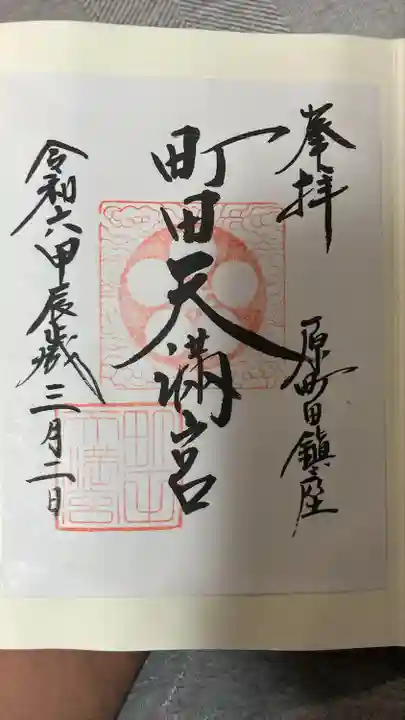 奉拝
原町田鎮座
町田天満宮
令和六甲辰歳三月二日
町田天満宮